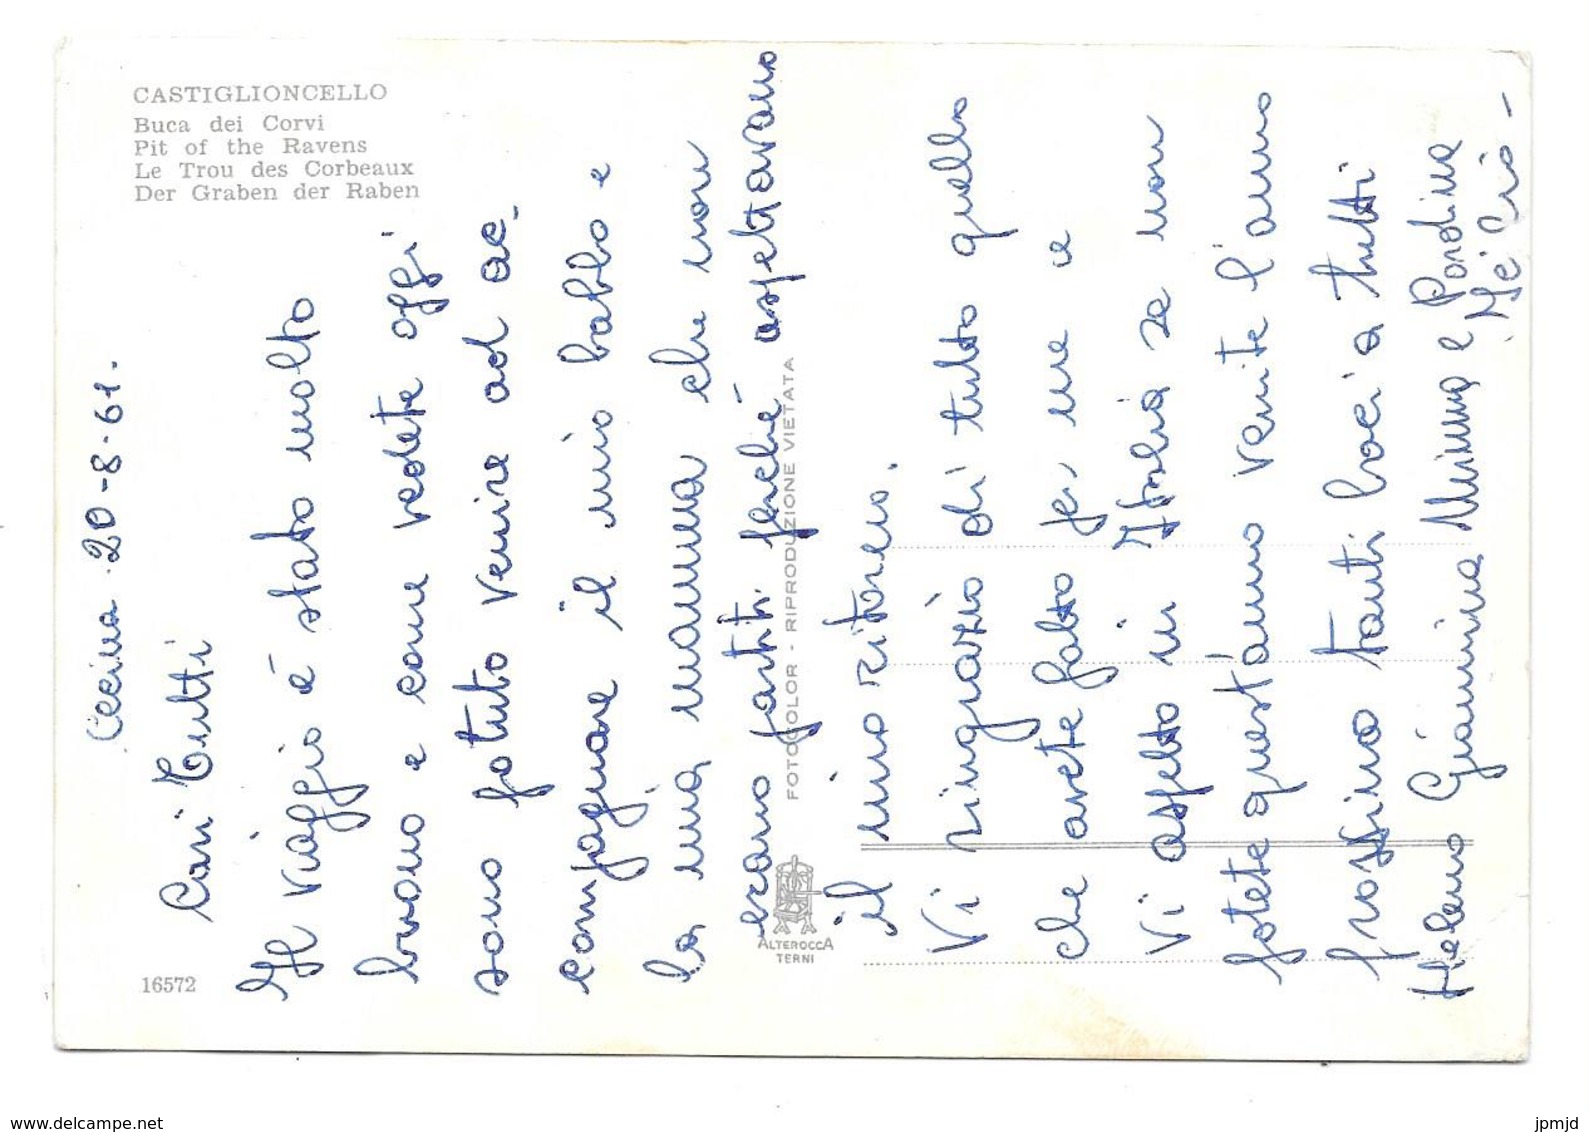 CASTIGLIONCELLO
Buca dei Corvi
Pit of the Ravens
Le Trou des Corbeaux
Der Graben der Raben
16572
FOTOCOLOR - RIPRODUZIONE VIETATA
ALTEROCCA
TERNI
Cecina 20-8-61.
Cari Tutti
Il viaggio é stato molto
buono e come vedete oggi
sono potuto venire ad ac-
compagnare il mio babbo e
la mia mamma che non
erano partiti perché aspettavano
il mio ritorno.
Vi ringrazio di tutto quello
che avete fatto per me e
Vi aspetto in Italia se non
potete quest'anno venite l'anno
prossimo tanti baci a tutti
Giannina Mimma e
www.delcampe.net
jpmjd